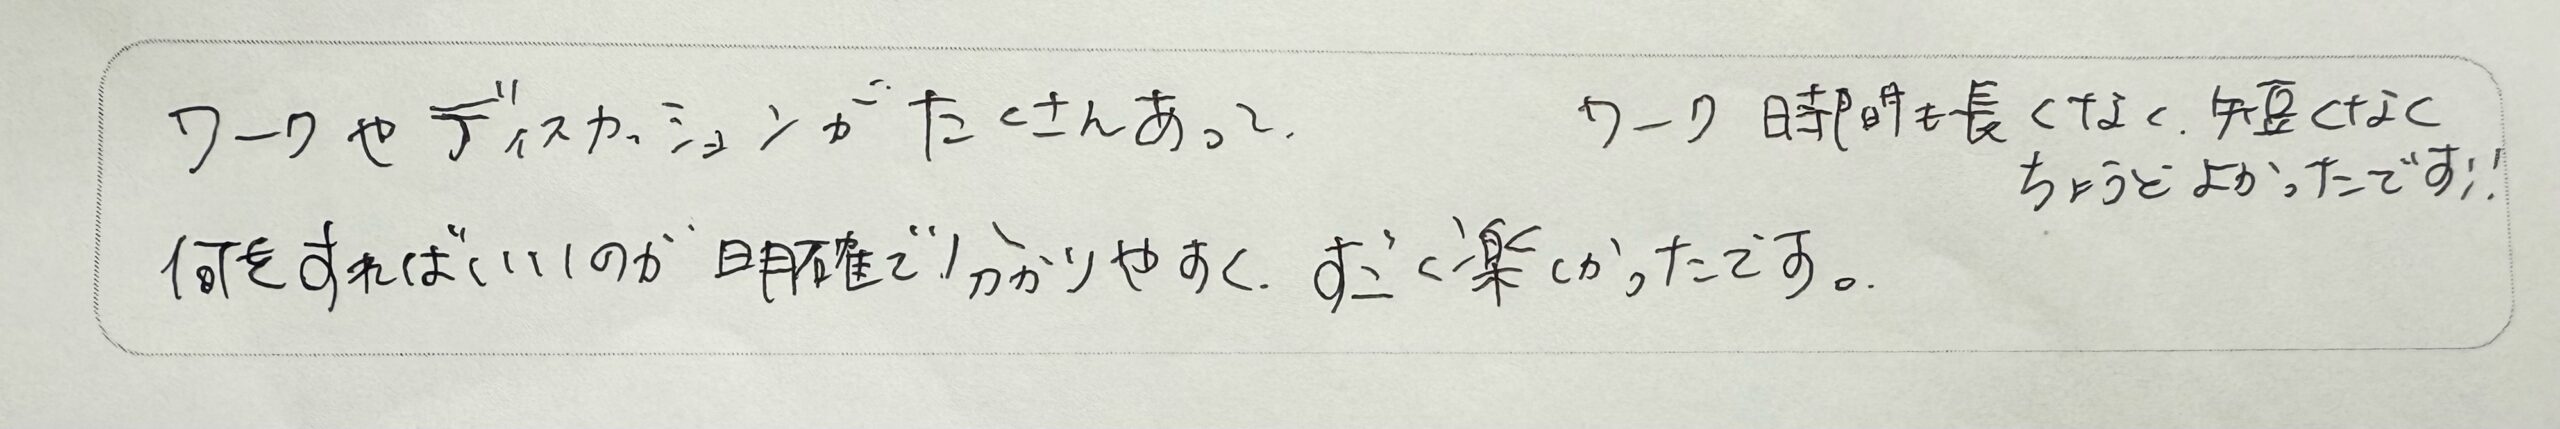 ワークやディスカッションがたくさんあって、
何をすればいいのが明確で分かりやすく、すごく楽しかったです。
ワーク時間も長くなく、短くなく
ちょうどよかったです!!